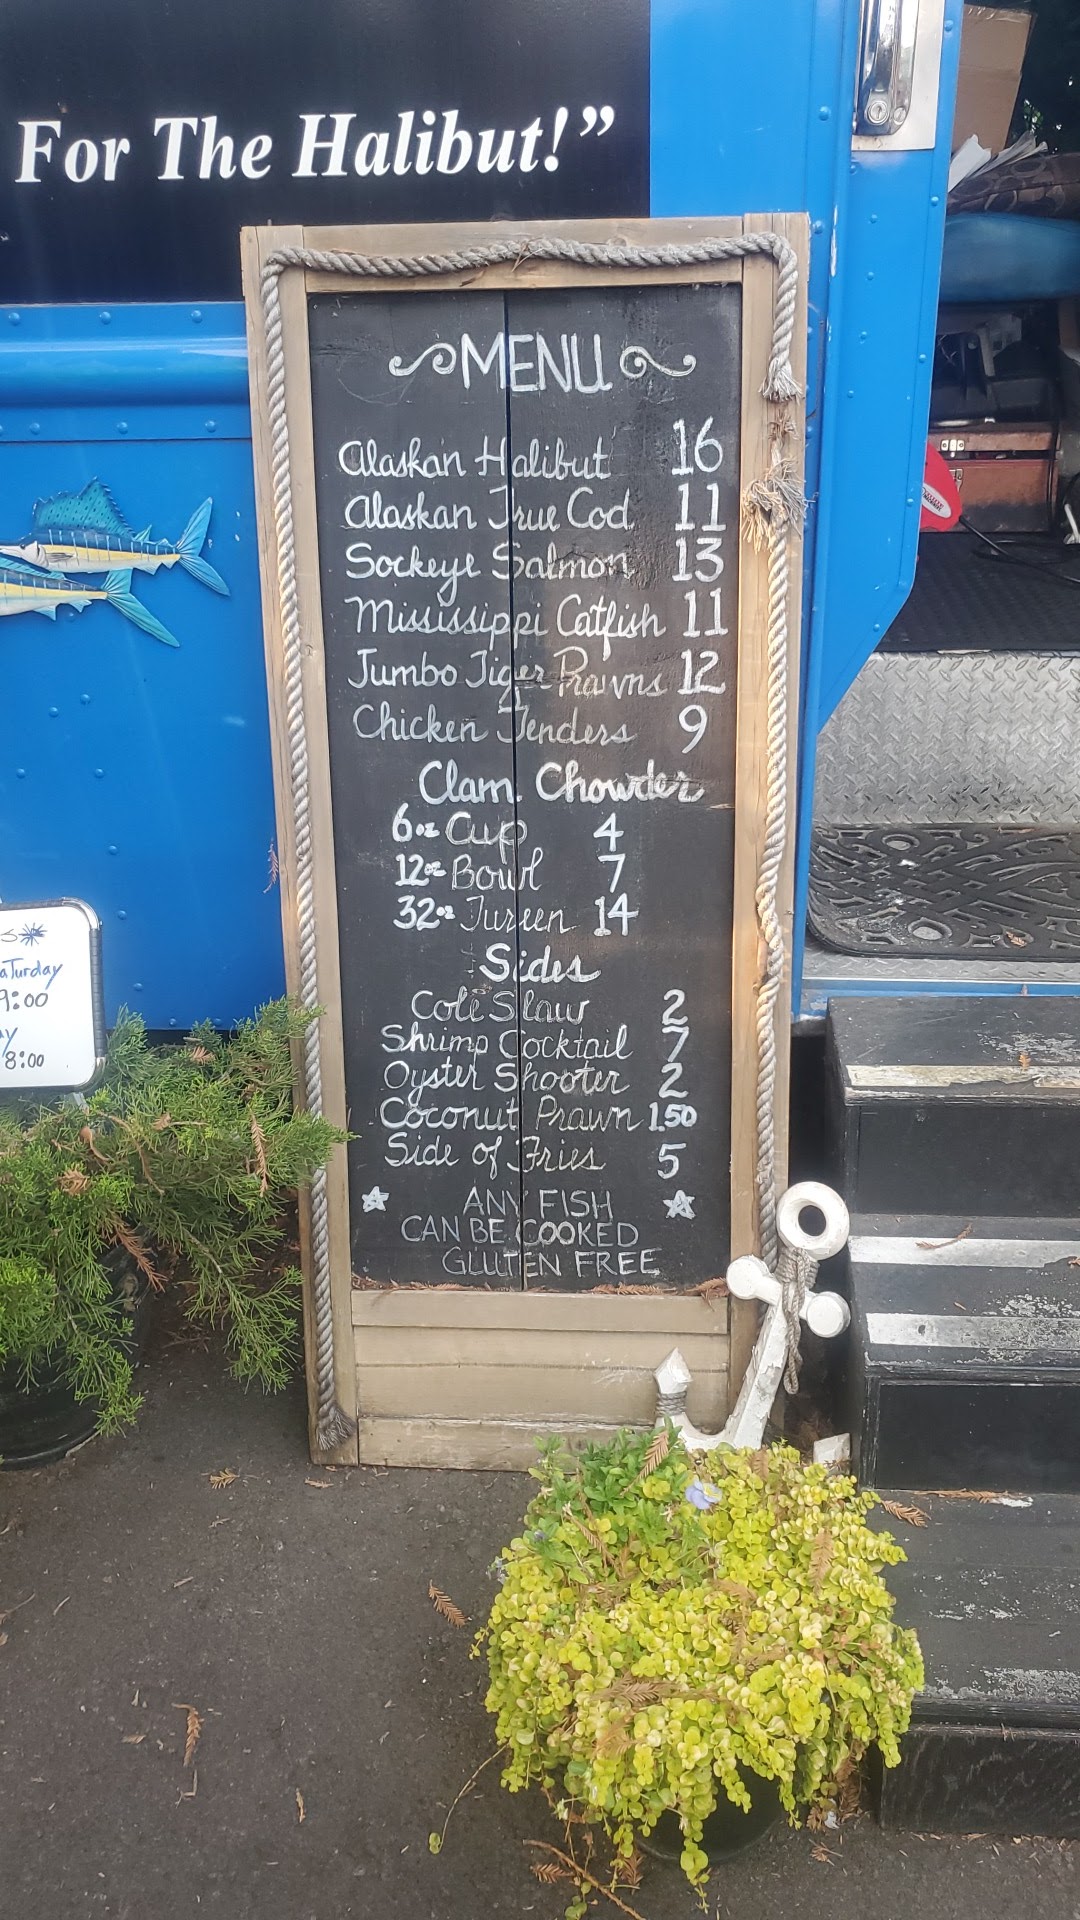 For The Halibut!”
MENU
Alaskan Halibut 16
Alaskan True Cod 11
Sockeye Salmon 13
Mississippi Catfish 11
Jumbo Tiger Prawns 12
Chicken Tenders 9
Clam Chowder
6oz Cup 4
12oz Bowl 7
32oz Tureen 14
Sides
Cole Slaw 2
Shrimp Cocktail 7
Oyster Shooter 2
Coconut Prawn 1.50
Side of Fries 5
ANY FISH
CAN BE COOKED
GLUTEN FREE
aTurday
9:00
ay
8:00